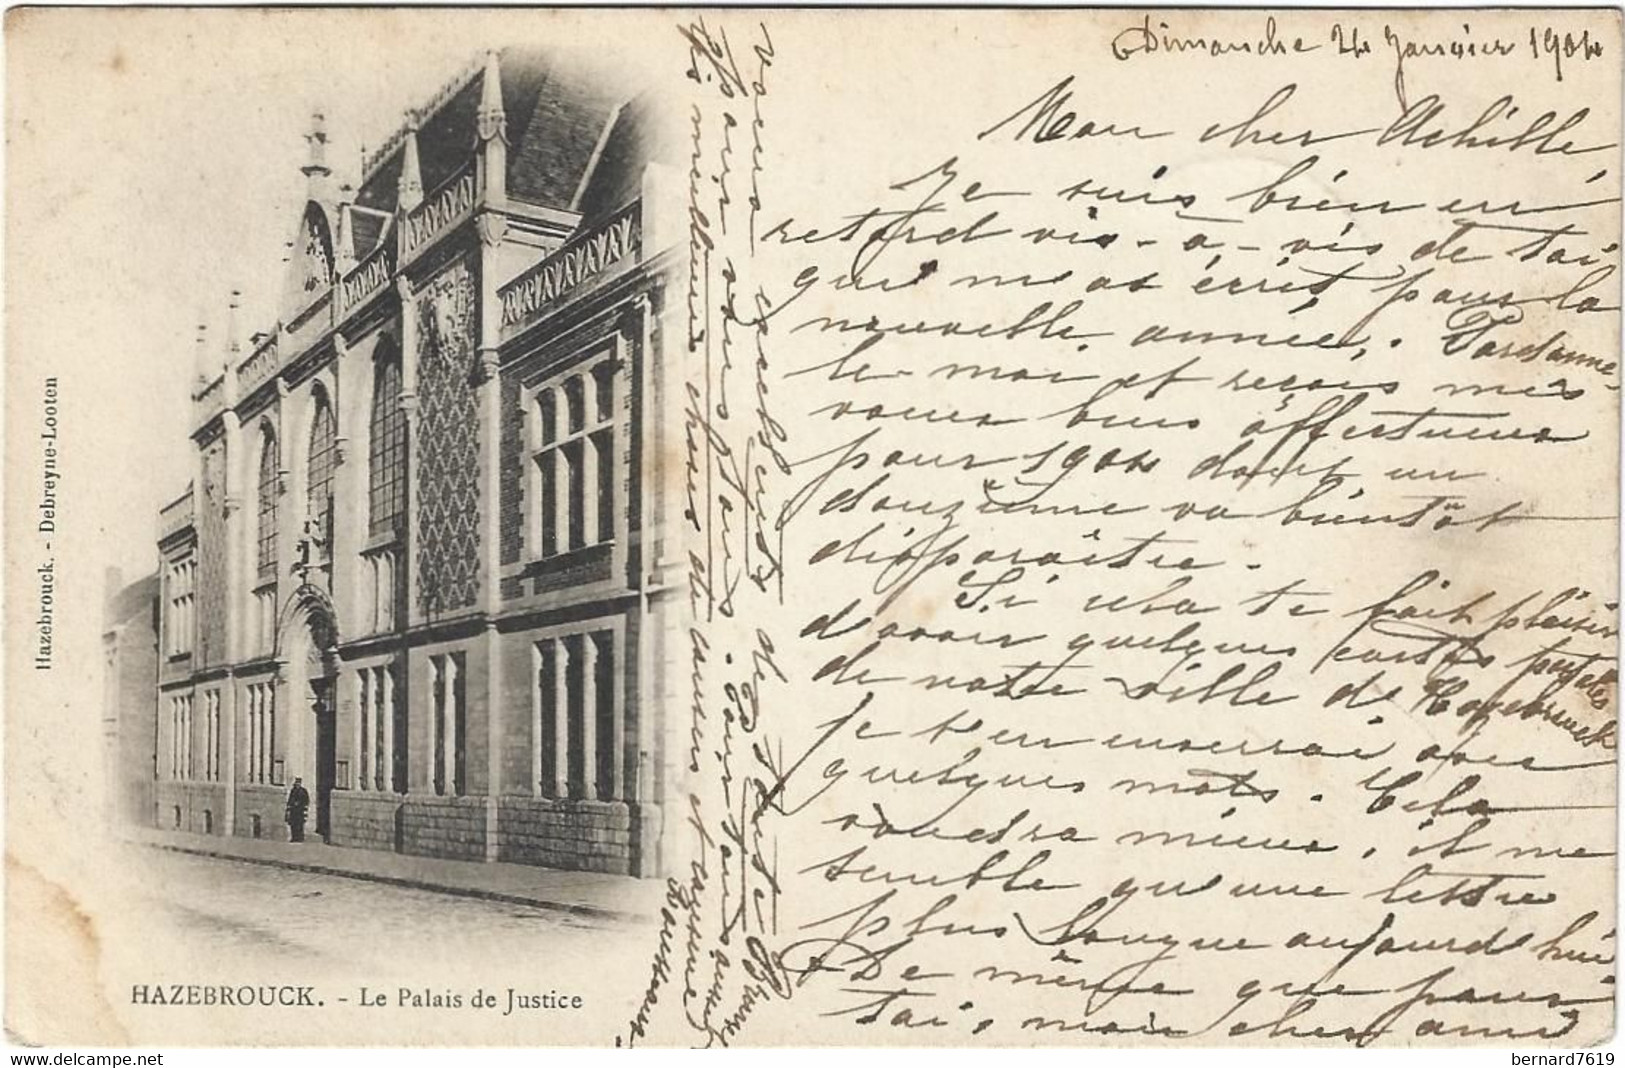 Dimanche 24 Janvier 1904
Mon cher Achille,
Je suis bien en
retard vis-à-vis de toi
qui m'as écrit pour la
nouvelle année. Pardonne-
le-moi et reçois mes
voeux bien affectueux
pour 1904 dont un
douzième va bientôt
disparaître.
Si cela te fait plaisir
d'avoir quelques cartes postales
de notre ville d'Hazebrouck
je t'en enverrai avec
quelques mots. Cela
vaudra mieux, il me
semble qu'une lettre
plus longue aujourd'hui.
De même que pour
toi, mon cher ami
voeux excellents de Sainte
pour vous tous. Pour toi, mon ami,
mis meilleurs
Hazebrouck. - Debreyne-Looten
HAZEBROUCK. - Le Palais de Justice
delcampe.net
bernard7619